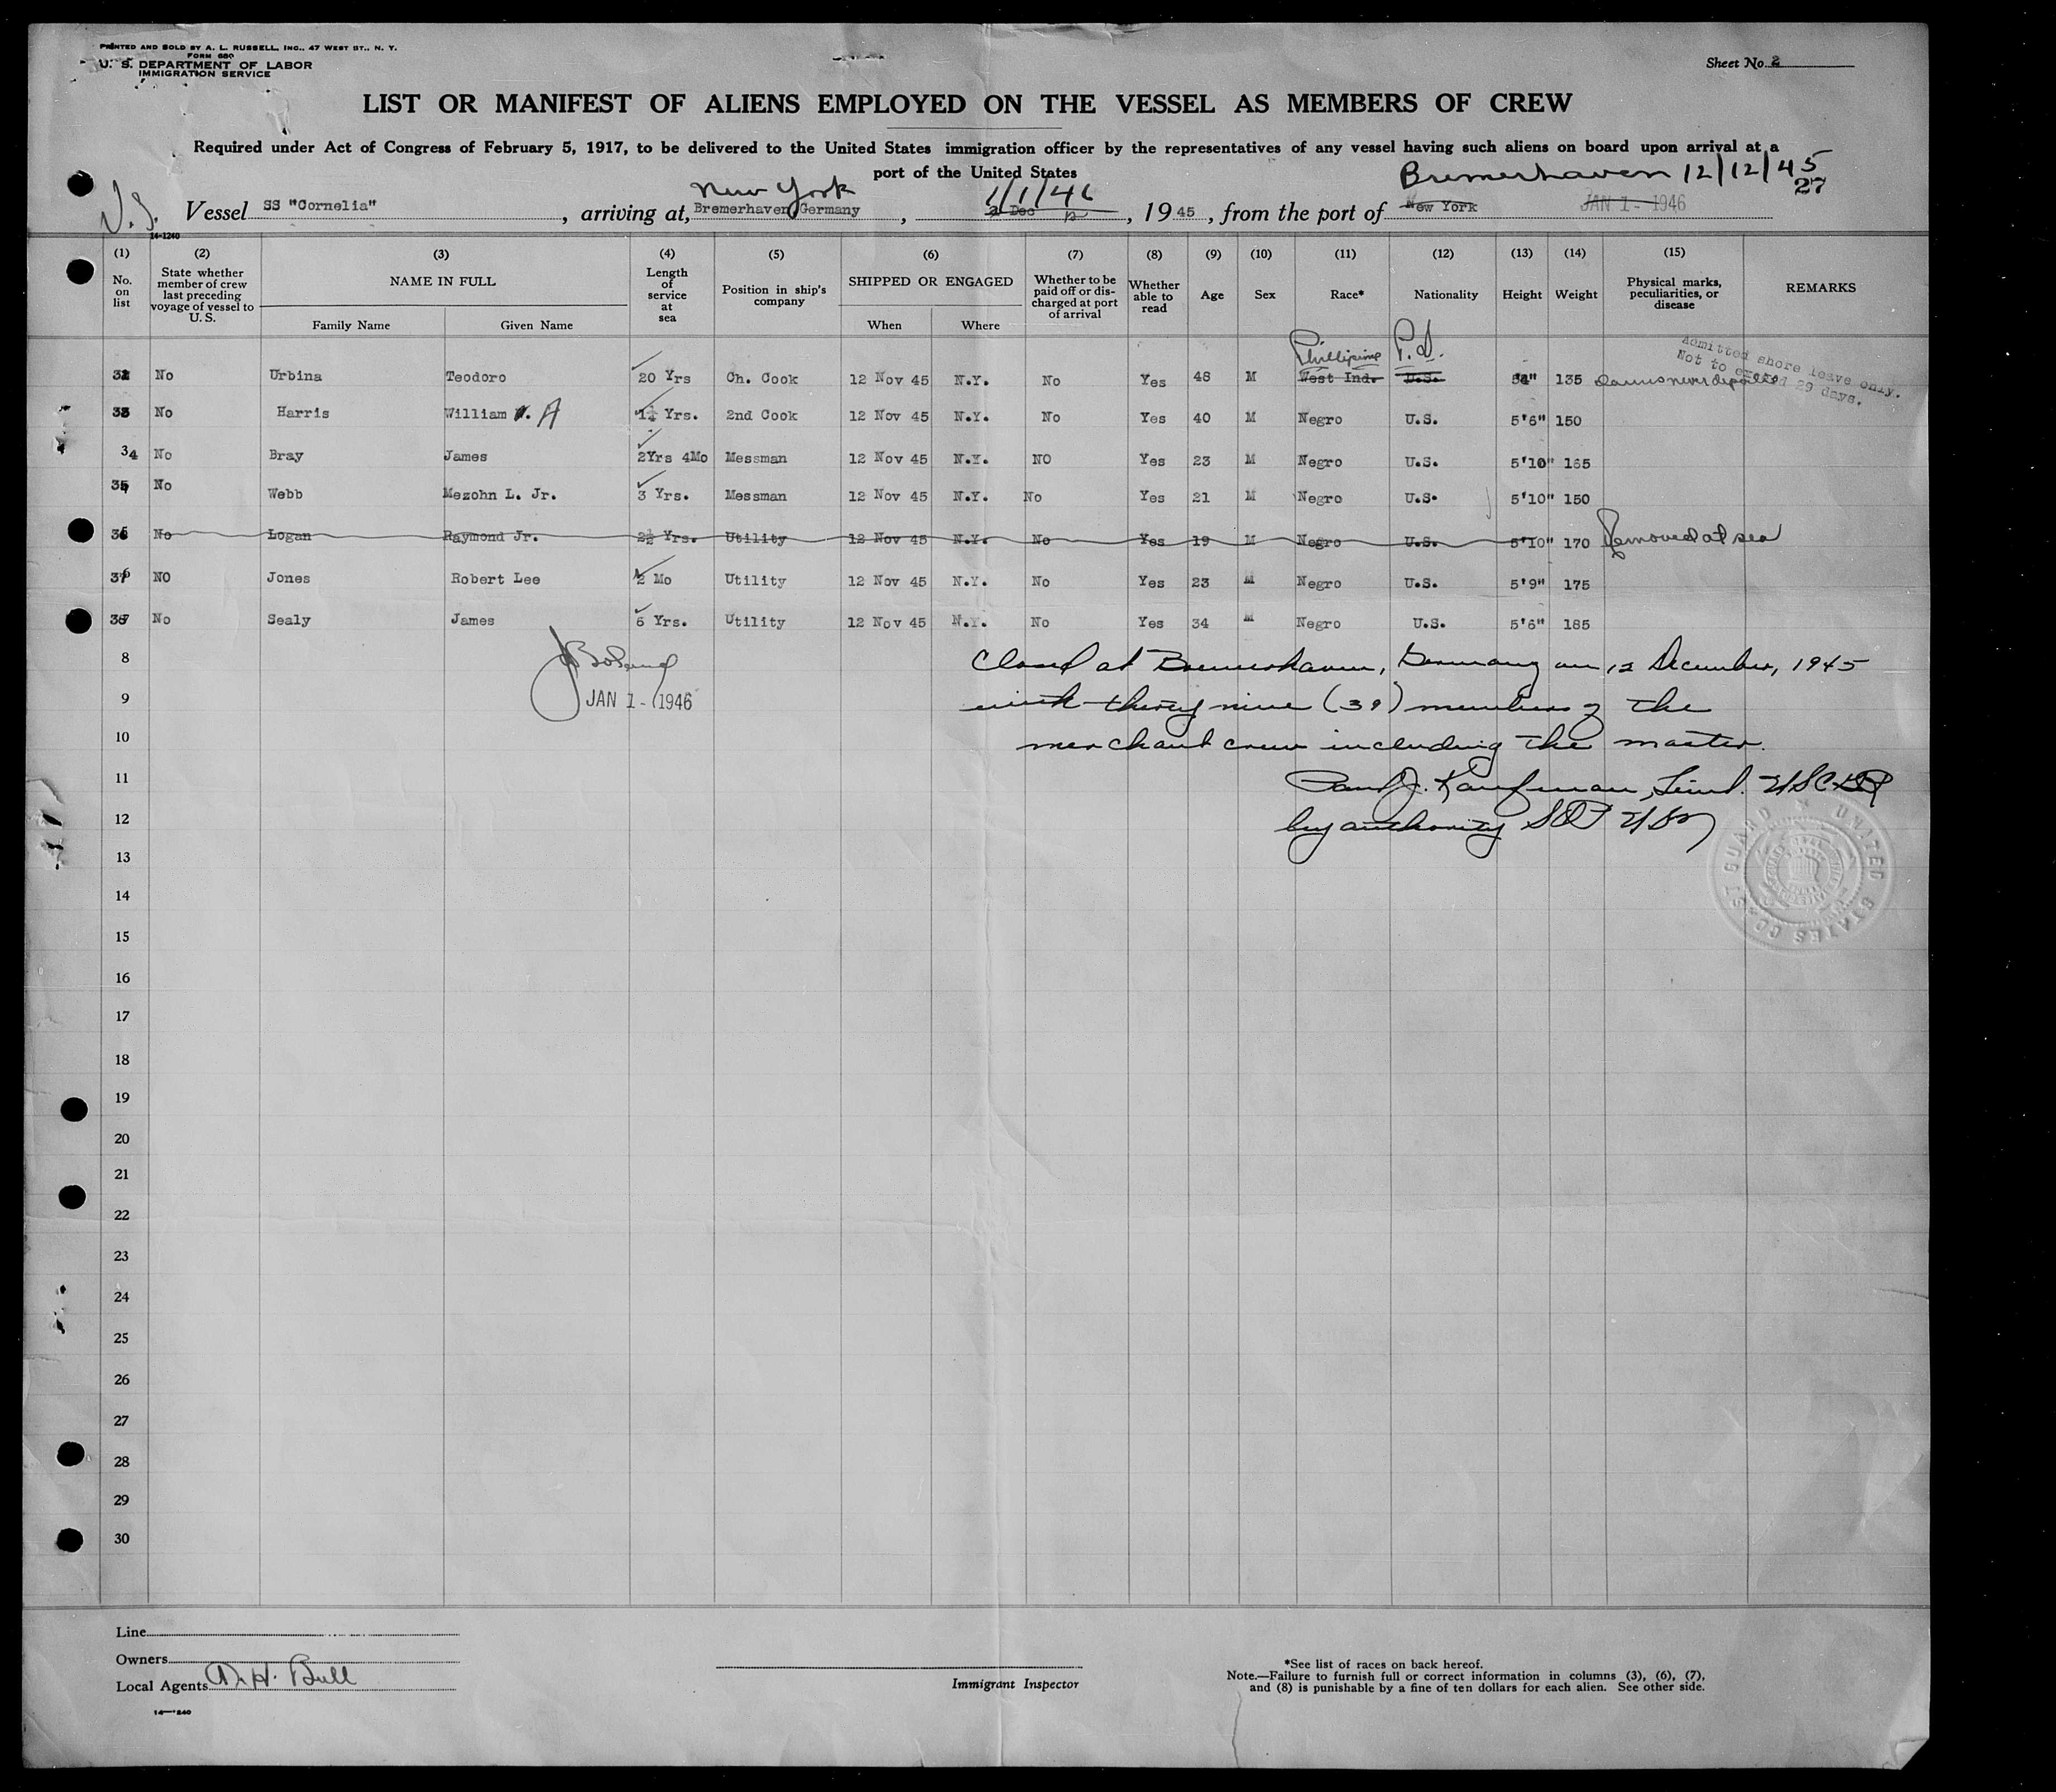 PRINTED AND SOLD BY A. L. RUSSELL, INC., 47 WEST ST., N. Y.
FORM 680
U. S. DEPARTMENT OF LABOR
IMMIGRATION SERVICE
Sheet No. 2
LIST OR MANIFEST OF ALIENS EMPLOYED ON THE VESSEL AS MEMBERS OF CREW
Required under Act of Congress of February 5, 1917, to be delivered to the United States immigration officer by the representatives of any vessel having such aliens on board upon arrival at a
port of the United States
New York 1/1/46 Bremerhaven 12/12/45
27
Vessel SS "Cornelia", arriving at, Bremerhaven, Germany, Dec, 1945, from the port of New York JAN 1 - 1946
14-1240
(1) (2) (3) (4) (5) (6) (7) (8) (9) (10) (11) (12) (13) (14) (15)
No. on list
State whether member of crew last preceding voyage of vessel to U. S.
NAME IN FULL
Family Name Given Name
Length of service at sea
Position in ship's company
SHIPPED OR ENGAGED
When Where
Whether to be paid off or discharged at port of arrival
Whether able to read
Age
Sex
Race*
Nationality
Height
Weight
Physical marks, peculiarities, or disease
REMARKS
Phillipine
Admitted shore leave only.
Not to exceed 29 days.
No Urbina Teodoro 20 Yrs Ch. Cook 12 Nov 45 N.Y. No Yes 48 M West Ind. U.S. 135
No Harris William A Yrs. 2nd Cook 12 Nov 45 N.Y. No Yes 40 M Negro U.S. 5'6" 150
34 No Bray James 2Yrs 4Mo Messman 12 Nov 45 N.Y. NO Yes 23 M Negro U.S. 5'10" 165
No Webb Mezohn L. Jr. 3 Yrs. Messman 12 Nov 45 N.Y. No Yes 21 M Negro U.S. 5'10" 150
No Logan Raymond Jr. 2½ Yrs. Utility 12 Nov 45 N.Y. No Yes 19 M Negro U.S. 5'10" 170 Removed at sea
NO Jones Robert Lee 2 Mo Utility 12 Nov 45 N.Y. No Yes 23 M Negro U.S. 5'9" 175
No Sealy James 6 Yrs. Utility 12 Nov 45 N.Y. No Yes 34 M Negro U.S. 5'6" 185
8 Closed at Bremerhaven, Germany on 12 December, 1945
9 JAN 1 - 1946 with thirty nine (39) members of the
10 merchant crew including the master.
11 Paul J. Kaufman, Lieut. USCGR
12 by authority
UNITED STATES COAST GUARD
13
14
15
16
17
18
19
20
21
22
23
24
25
26
27
28
29
30
Line
Owners
Local Agents A. H. Bull
Immigrant Inspector
*See list of races on back hereof.
Note.—Failure to furnish full or correct information in columns (3), (6), (7),
and (8) is punishable by a fine of ten dollars for each alien. See other side.
14—1240